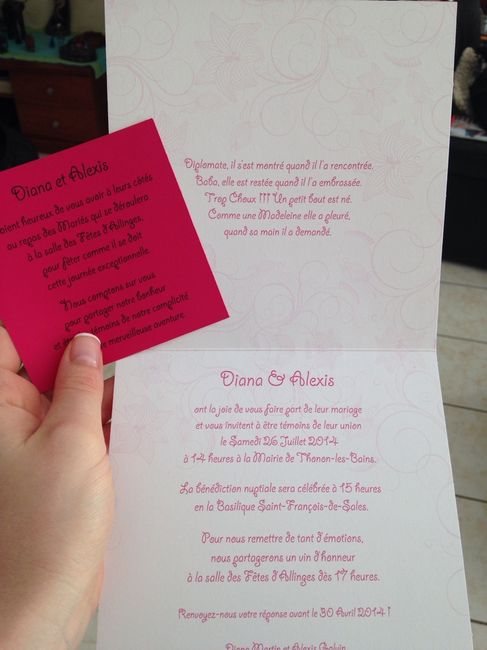 Diana et Alexis
oient heureux de vous avoir à leurs côtés
au repas des Mariés qui se déroulera
à la salle des Fêtes d'Allinges,
pour fêter comme il se doit
cette journée exceptionnelle.
Nous comptons sur vous
pour partager notre bonheur
et témoins de notre complicité
merveilleuse aventure.
Diplomate, il s'est montré quand il l'a rencontrée.
Baba, elle est restée quand il l'a embrassée.
Trop Choux !!! Un petit bout est né.
Comme une Madeleine elle a pleuré,
quand sa main il a demandé.
Diana & Alexis
ont la joie de vous faire part de leur mariage
et vous invitent à être témoins de leur union
le Samedi 26 Juillet 2014
à 14 heures à la Mairie de Thonon-les-Bains.
La bénédiction nuptiale sera célébrée à 15 heures
en la Basilique Saint-François-de-Sales.
Pour nous remettre de tant d'émotions,
nous partagerons un vin d'honneur
à la salle des Fêtes d'Allinges dès 17 heures.
Renvoyez-nous votre réponse avant le 30 Avril 2014 !
Diana Martin et Alexis